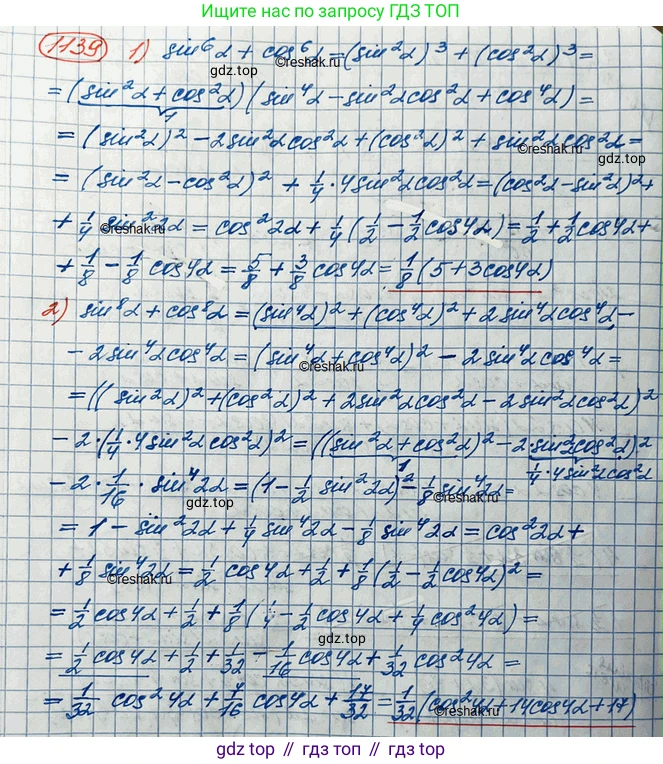 Ищи ответы по запросу ГДЗ ТОП
1139 1) sin⁶α + cos⁶α = (sin²α)³ + (cos²α)³ =
= (sin²α + cos²α)(sin⁴α - sin²αcos²α + cos⁴α) =
1
= (sin²α)² - 2sin²αcos²α + (cos²α)² + sin²αcos²α =
©reshak.ru
gdz.top
= (sin²α - cos²α)² + 1/4·4sin²αcos²α = (cos²α - sin²α)² +
+ 1/4 sin²2α = cos²2α + 1/4(1/2 - 1/2cos4α) = 1/2 + 1/2cos4α +
©reshak.ru
©reshak.ru
+ 1/8 - 1/8 cos4α = 5/8 + 3/8 cos4α = 1/8(5 + 3cos4α)
gdz.top
2) sin⁸α + cos⁸α = (sin⁴α)² + (cos⁴α)² + 2sin⁴αcos⁴α -
- 2sin⁴αcos⁴α = (sin⁴α + cos⁴α)² - 2sin⁴αcos⁴α =
©reshak.ru
= ((sin²α)² + (cos²α)² + 2sin²αcos²α - 2sin²αcos²α)²
- 2·(1/4·4sin²αcos²α)² = ((sin²α + cos²α)² - 2·sin²αcos²α)²
gdz.top
1
1/4·4sin²αcos²α
- 2·1/16·sin⁴2α = (1 - 1/2 sin²2α)² - 1/8 sin⁴2α =
©reshak.ru
= 1 - sin²2α + 1/4 sin⁴2α - 1/8 sin⁴2α = cos²2α +
+ 1/8 sin⁴2α = 1/2 cos4α + 1/2 + 1/8(1/2 - 1/2cos4α)² =
©reshak.ru
= 1/2 cos4α + 1/2 + 1/8(1/4 - 1/2cos4α + 1/4cos²4α) =
gdz.top
= 1/2 cos4α + 1/2 + 1/32 - 1/16 cos4α + 1/32 cos²4α =
= 1/32 cos²4α + 7/16 cos4α + 17/32 = 1/32(cos²4α + 14cos4α + 17)
©reshak.ru
gdz.top // гдз.топ // gdz.top